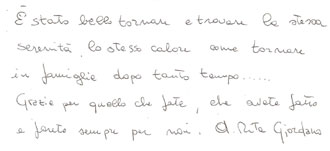 È stato bello tornare e trovare la stessa
serenità, lo stesso calore come tornare
in famiglia dopo tanto tempo......
Grazie per quello che fate, che avete fatto
e farete sempre per noi. A. Rita Giordano